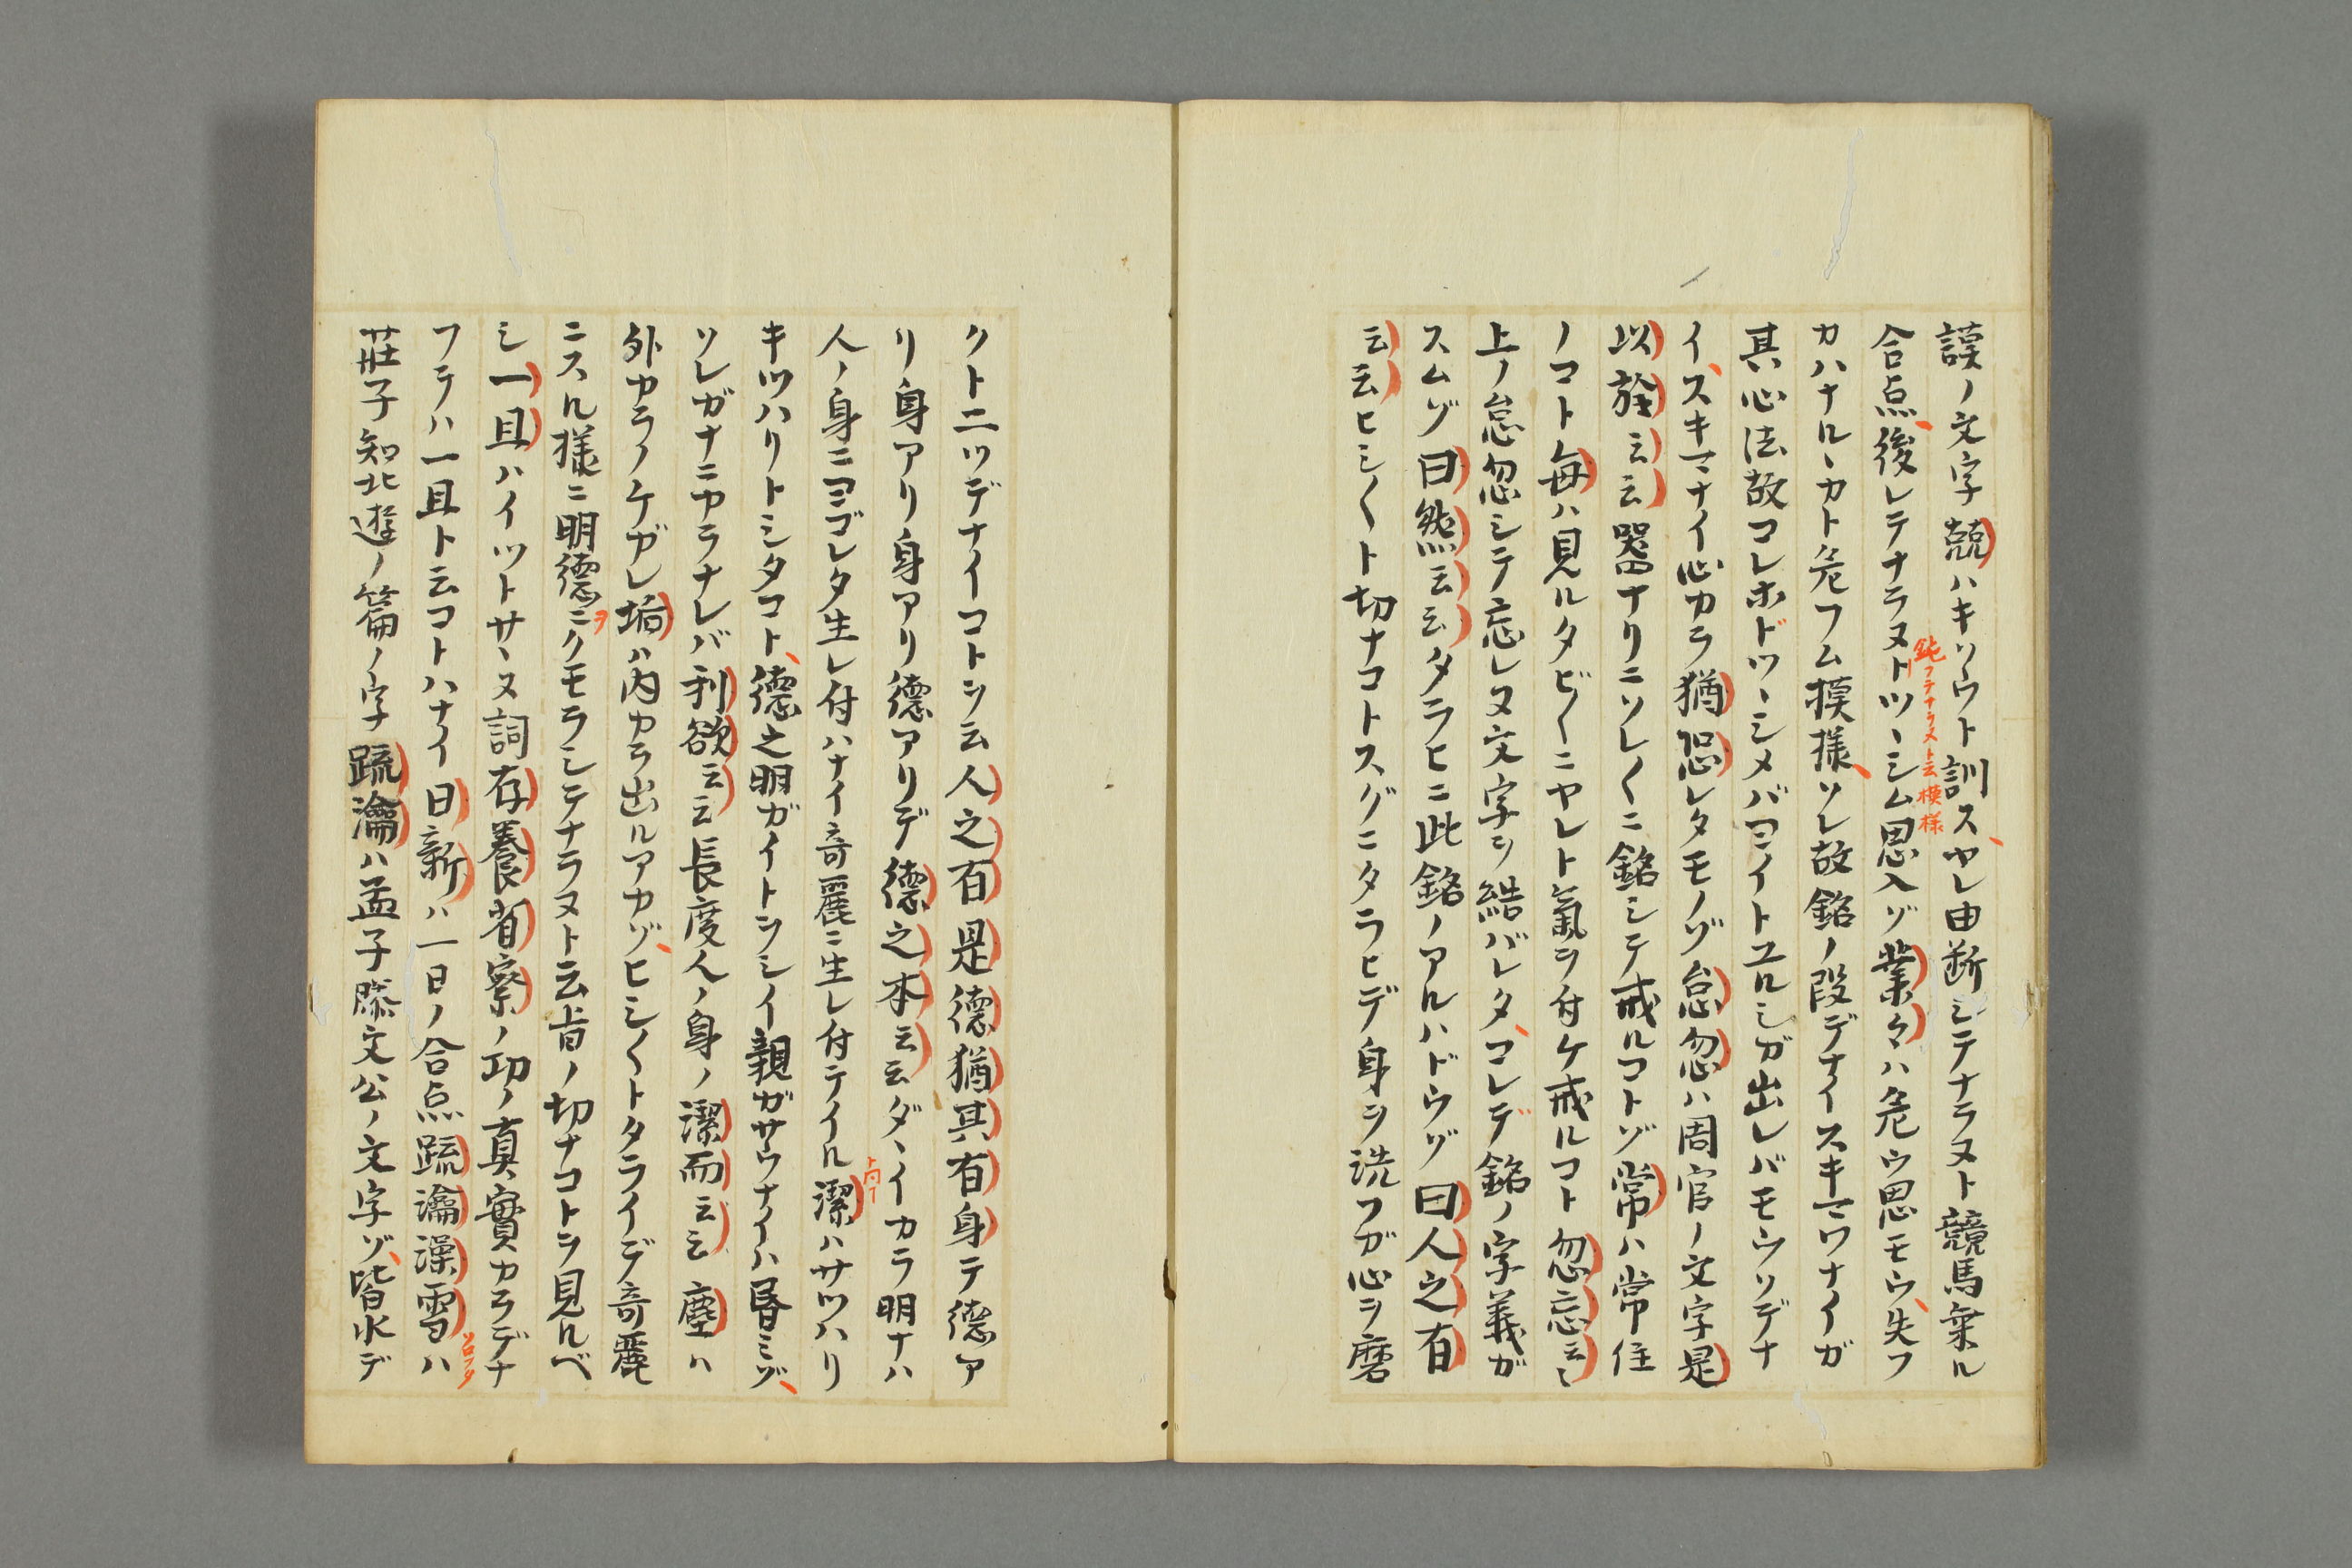 謨ノ文字兢ハキソウト訓スヤレ由断シテナラヌト競馬乗ル
合点後レテナラヌトツヽシム思入ゾ業々ハ危ウ思モウ失フ
鈍フテナラヌト云模様
カハナルヽカト危フム摸様ソレ故銘ノ段デナイスキマワナイガ
其心法故コレホドツヽシメバヨイトユルシガ出レバモウソデナ
イスキマナイ心カラ猶恐レタモノゾ怠忽ハ周官ノ文字是
以於云云器ナリニソレ〱ニ銘シテ戒ルコトゾ常ハ常住
ノコト毎ハ見ルタビ〱ニヤレト氣ヲ付ケ戒ルコト忽忘云々
上ノ怠忽シテ忘レヌ文字ヲ結バレタコレデ銘ノ字義ガ
スムゾ曰然云云タラヒニ此銘ノアルハドウゾ曰人之有
云云ヒシ〱ト切ナコトスグニタラヒデ身ヲ洗フガ心ヲ磨
クト二ツデナイコトヲ云人之有是德猶其有身テ德ア
リ身アリ身アリ德アリデ德之本云云ダヽイカラ明ナハ
人ノ身ニヨゴレタ生レ付ハナイ奇麗ニ生レ付テイル潔ハサツハリ
キツハリトシタコト德之明ガイトヲシイ親ガサウナイハ昏ミゾ
ソレガナニヤラナレバ利欲云云長度人ノ身ノ潔而云云塵ハ
外カラノケガレ垢ハ内カラ出ルアカゾヒシ〱トタライデ奇麗
ニスル様ニ明德ニクモラシテナラヌト云旨ノ切ナコトヲ見ルベ
ヲ
シ一且ハイツトサヽヌ詞存養省察ノ功ノ真實カラデナ
フテハ一且ト云コトハナイ日新ハ一日ノ合点疏瀹澡雪ハ
莊子知北遊ノ篇ノ字疏瀹ハ孟子滕文公ノ文字ゾ皆水デ